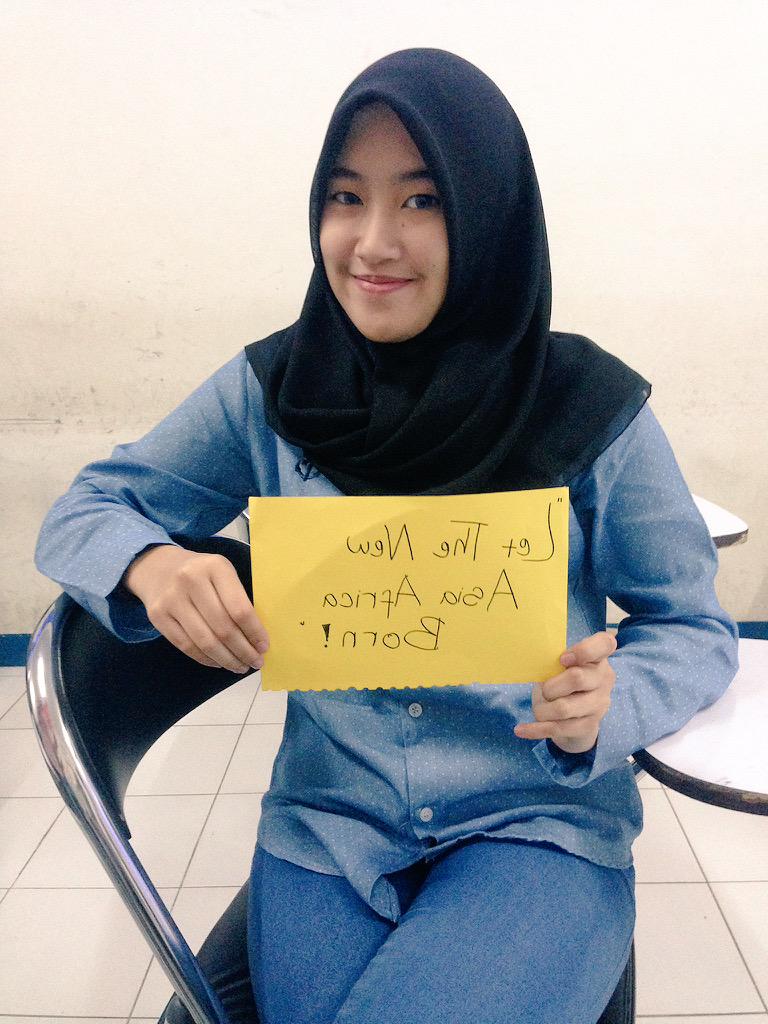 "Let The New
Asia Africa
Born!"